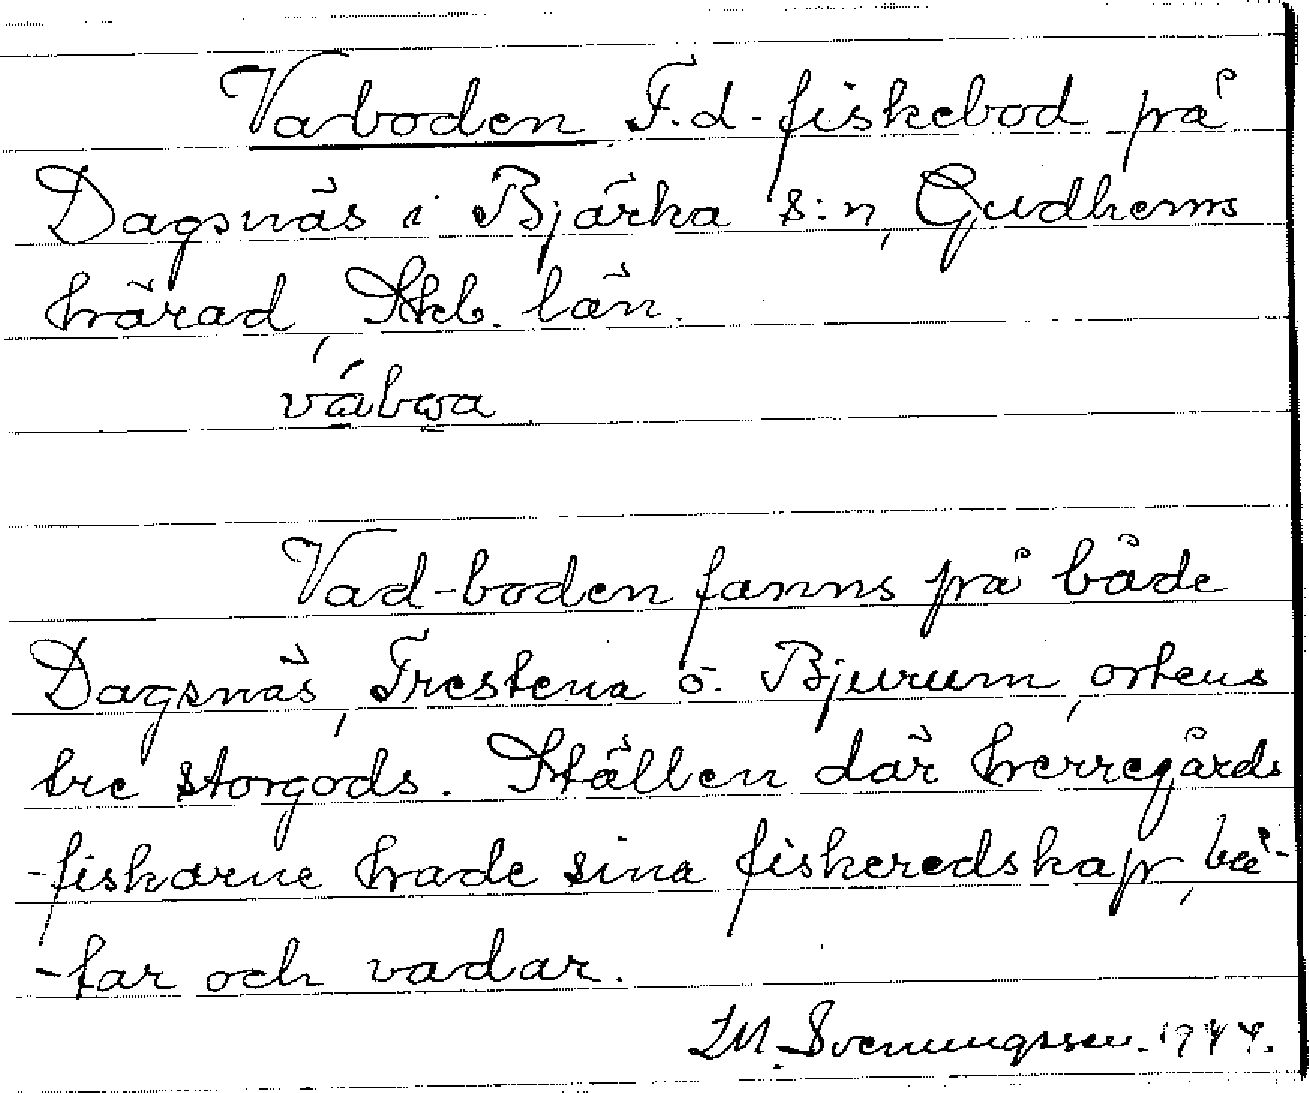 Vaboden F.d. fiskebod på
Dagsnäs i Bjärka s:n, Gudhems
härad, Skb. län.
vábωa
Vad-boden fanns på både
Dagsnäs, Trestena o. Bjurum, ortens
tre storgods. Ställen där herregårds
-fiskarne hade sina fiskeredskap, bå-
-tar och vadar.
LM. Svenungsson. 1944.